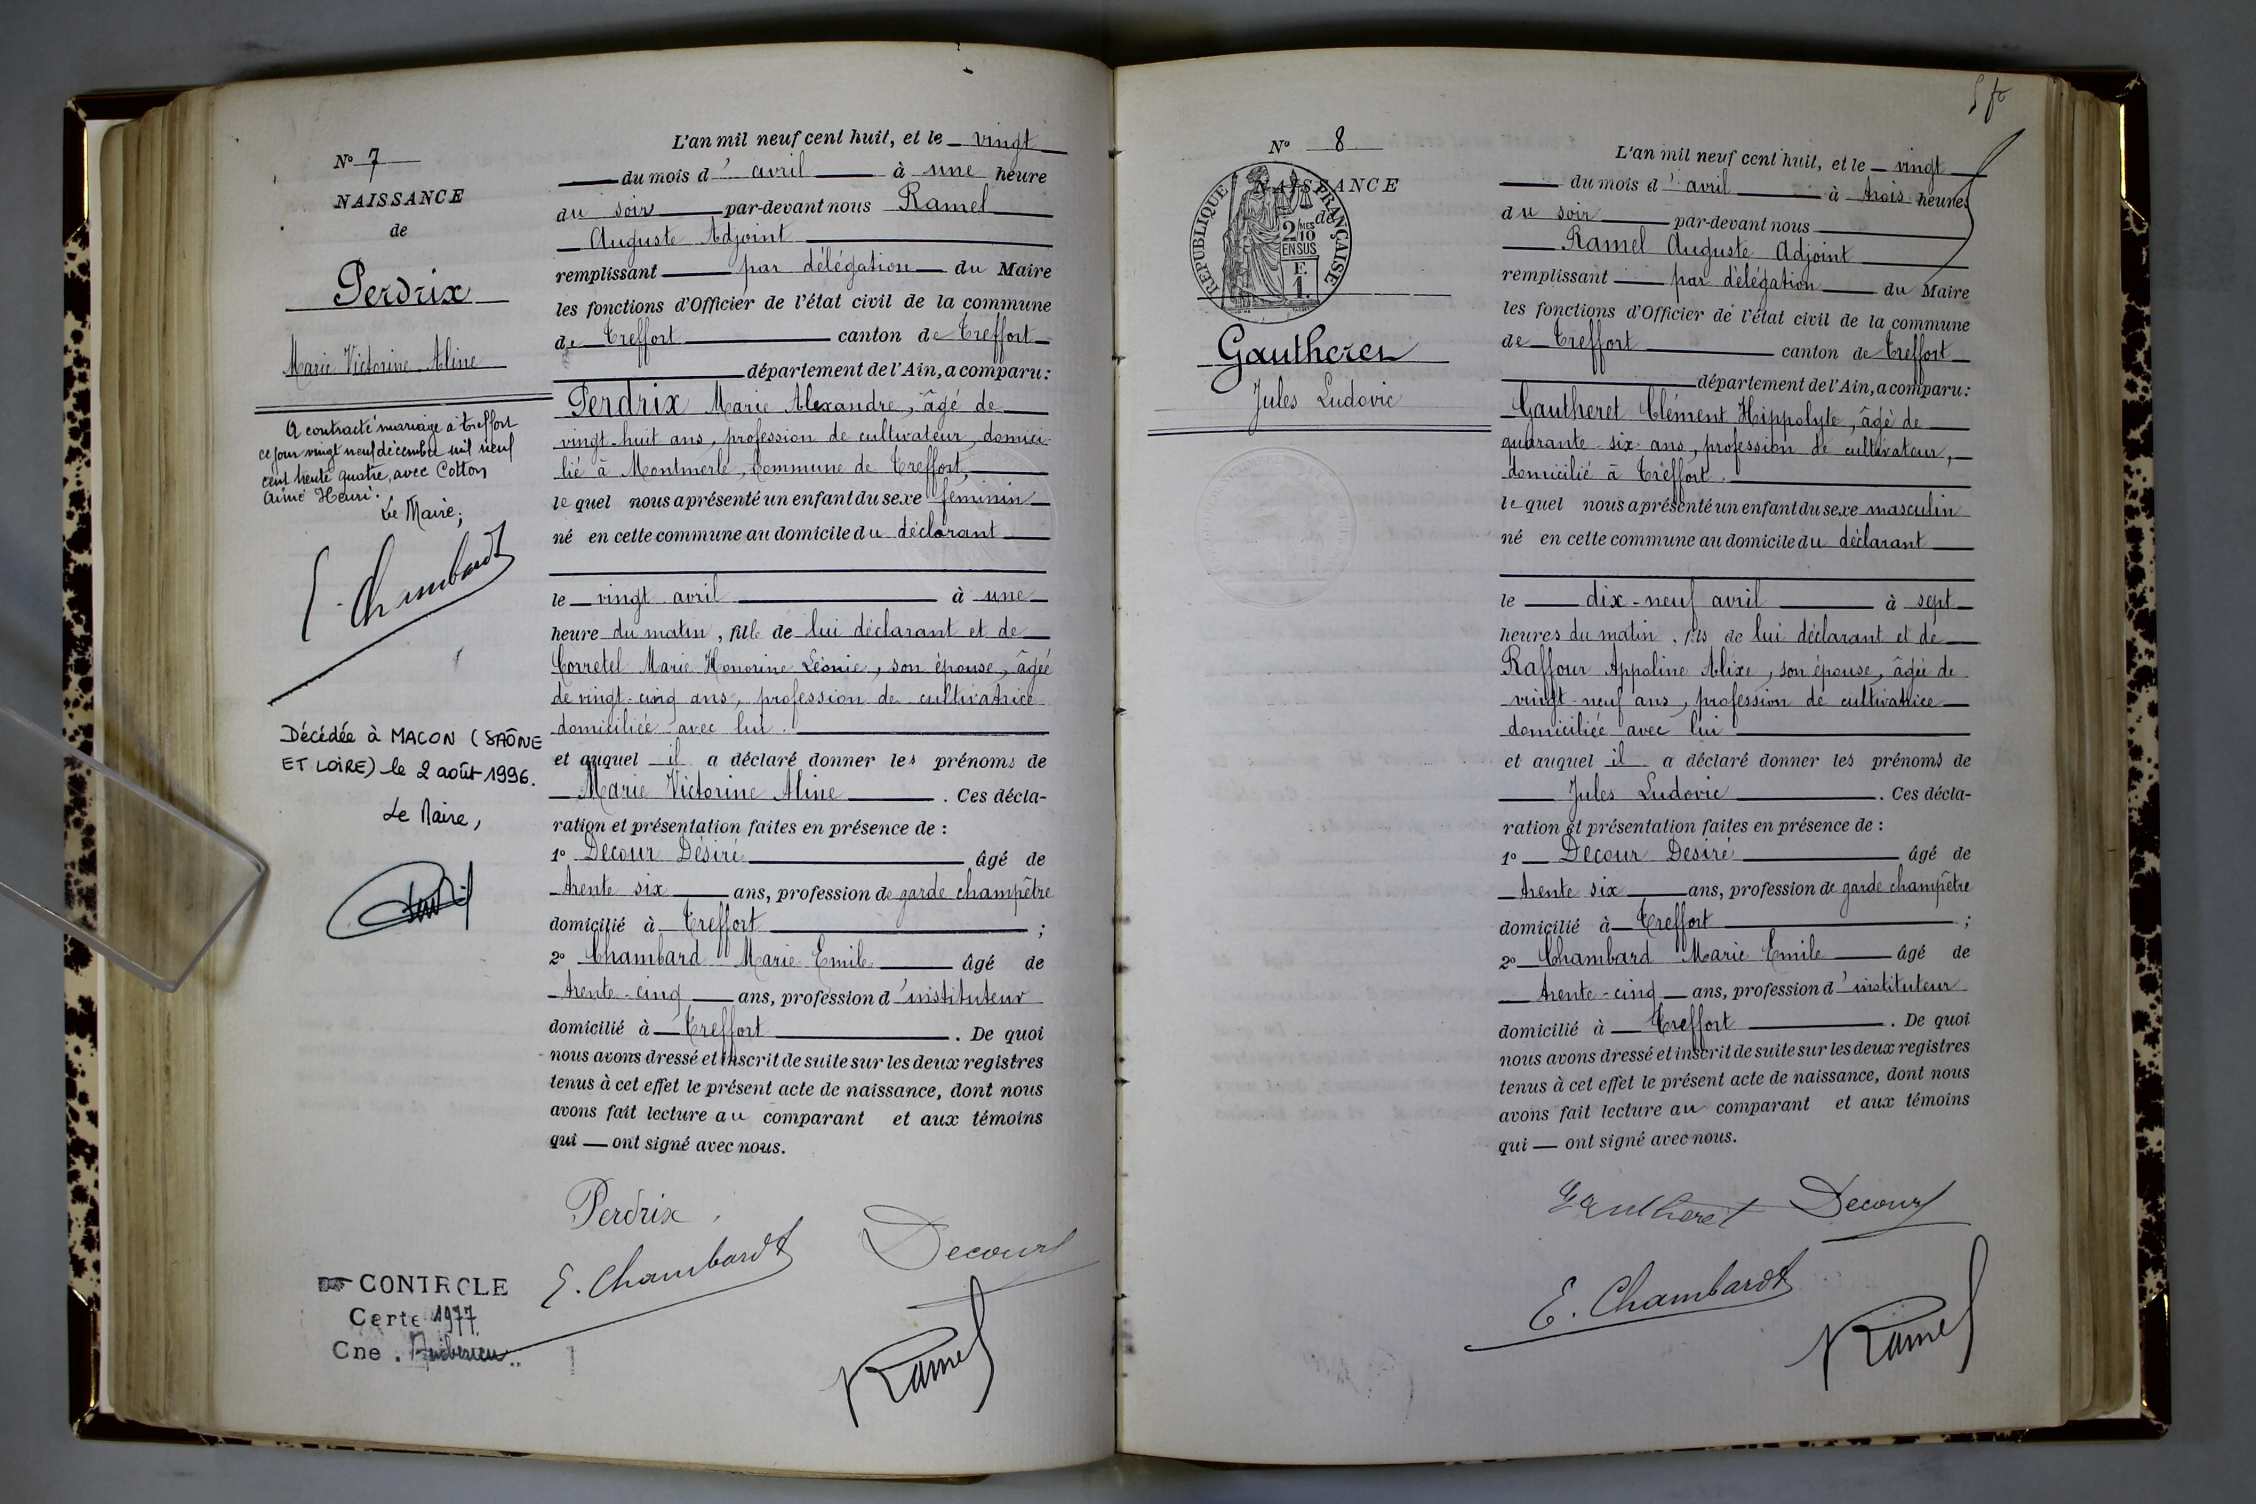 N° 7
NAISSANCE
de
Perdrix
Marie Victorine Aline
A contracté mariage à Treffort
ce jour vingt neuf décembre mil neuf
cent trente quatre, avec Cotton
Aimé Henri.
Le Maire,
E. Chambardt
Décédée à MACON (SAÔNE
ET LOIRE) le 2 août 1996.
Le Maire,
CONTROLE
Certe 1977
Cne
L'an mil neuf cent huit, et le vingt
du mois d'avril à une heure
du soir par-devant nous Ramel
Auguste Adjoint
remplissant par délégation du Maire
les fonctions d'Officier de l'état civil de la commune
de Treffort canton de Treffort
département de l'Ain, a comparu:
Perdrix Marie Alexandre, âgé de
vingt-huit ans, profession de cultivateur, domici-
lié à Montmerle, Commune de Treffort,
lequel nous a présenté un enfant du sexe féminin
né en cette commune au domicile du déclarant
le vingt avril à une
heure du matin, fille de lui déclarant et de
Corretel Marie Honorine Léonie, son épouse, âgée
de vingt-cinq ans, profession de cultivatrice
domiciliée avec lui.
et auquel il a déclaré donner les prénoms de
Marie Victorine Aline. Ces décla-
ration et présentation faites en présence de :
1° Decour Desiré âgé de
trente six ans, profession de garde champêtre
domicilié à Treffort ;
2° Chambard Marie Emile âgé de
trente-cinq ans, profession d'instituteur
domicilié à Treffort. De quoi
nous avons dressé et inscrit de suite sur les deux registres
tenus à cet effet le présent acte de naissance, dont nous
avons fait lecture au comparant et aux témoins
qui ont signé avec nous.
Perdrix
E. Chambardt Decour
Ramel
5 fo
N° 8
NAISSANCE
de
REPUBLIQUE FRANÇAISE
2/10 MES
EN SUS
F.
1.
Gautheret
Jules Ludovic
L'an mil neuf cent huit, et le vingt
du mois d'avril à trois heures
du soir par-devant nous
Ramel Auguste Adjoint
remplissant par délégation du Maire
les fonctions d'Officier de l'état civil de la commune
de Treffort canton de Treffort
département de l'Ain, a comparu:
Gautheret Clément Hippolyte, âgé de
quarante-six ans, profession de cultivateur,
domicilié à Treffort.
lequel nous a présenté un enfant du sexe masculin
né en cette commune au domicile du déclarant
le dix-neuf avril à sept
heures du matin, fils de lui déclarant et de
Raffour Appoline Alixe, son épouse, âgée de
vingt-neuf ans, profession de cultivatrice
domiciliée avec lui
et auquel il a déclaré donner les prénoms de
Jules Ludovic. Ces décla-
ration et présentation faites en présence de :
1° Decour Desiré âgé de
trente six ans, profession de garde champêtre
domicilié à Treffort ;
2° Chambard Marie Emile âgé de
trente-cinq ans, profession d'instituteur
domicilié à Treffort. De quoi
nous avons dressé et inscrit de suite sur les deux registres
tenus à cet effet le présent acte de naissance, dont nous
avons fait lecture au comparant et aux témoins
qui ont signé avec nous.
Gautheret Decour
E. Chambardt
Ramel